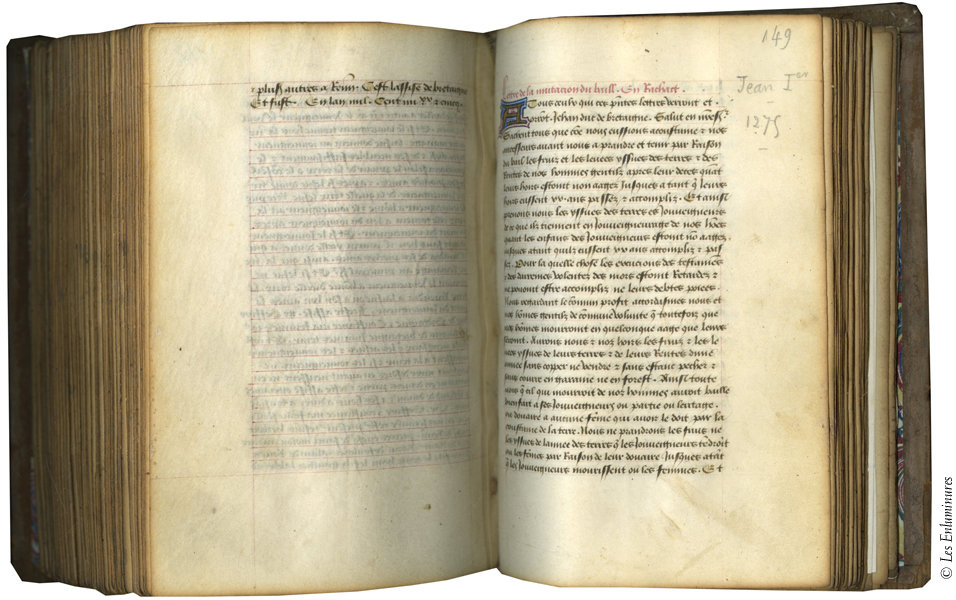 plus autres a Renn. Cest lassise de bretaigne
Et fust. En lan mil. Cent iiii xx & cincq.
149
Jean Ier
1275
Lettre de la mutacion du baill. En Rachact.
A Tous ceulx qui ces pntes lettres verront et
orront. Jehan duc de bretaigne. Salut en nre sr.
Sachent tous que cõe nous eussions acoustume & nos
ancesseurs avant nous a prandre et tenir par Raison
du bail les fruiz et les levees yssues des terres & des
Rentes de nos hommes gentilz apres leur deces quãt
leurs hoirs estoint non aagez Jusques a tant q leurs
hoirs eussent xx ans passez & accompliz. Et ainsi
prenons nous les yssues des terres es Jouveigneurs
de ce que ilz tiennent en Jouveigneurage de nos hões
quant les enfans des Jouveigneurs estoint nõ aagez.
Jusques atant quilz eussent xx ans accompliz & pas
sez. Pour la quelle chose les execucions des testamẽs
& des darrenes volentez des mors estoint Retardez &
ne pouoint estre accompliz ne leurs debtes poiees.
Nous regardant le cõmun profit accordasmes nous et
nos hõmes gentilz de cõmune volunte q toutesfoiz que
nos hõmes mourront en quelconque aage que leurs
seront. Aurons nous & noz hoirs les fruiz & les le
vees yssues de leurs terres & de leurs Rentes dune
annee sans copper ne vendre & sans estanc pecher &
sans courre en garanne ne en forest. Ainsi toute
voies q cil qui mourroit de noz hommes auroit baille
bienfait a ses Jouveigneurs ou partie ou heritage.
ou douaire a aucune fẽme qui avoir le doit par la
coustume de la terre. Nous ne prandrons les fruis ne
les yssues de lannee des terres q les Jouveigneurs tẽdroĩt
ou les fẽmes par Raison de leur douaire Jusques atãt
q les Jouveigneurs mourissent ou les femmes. Et
© Les Enluminures